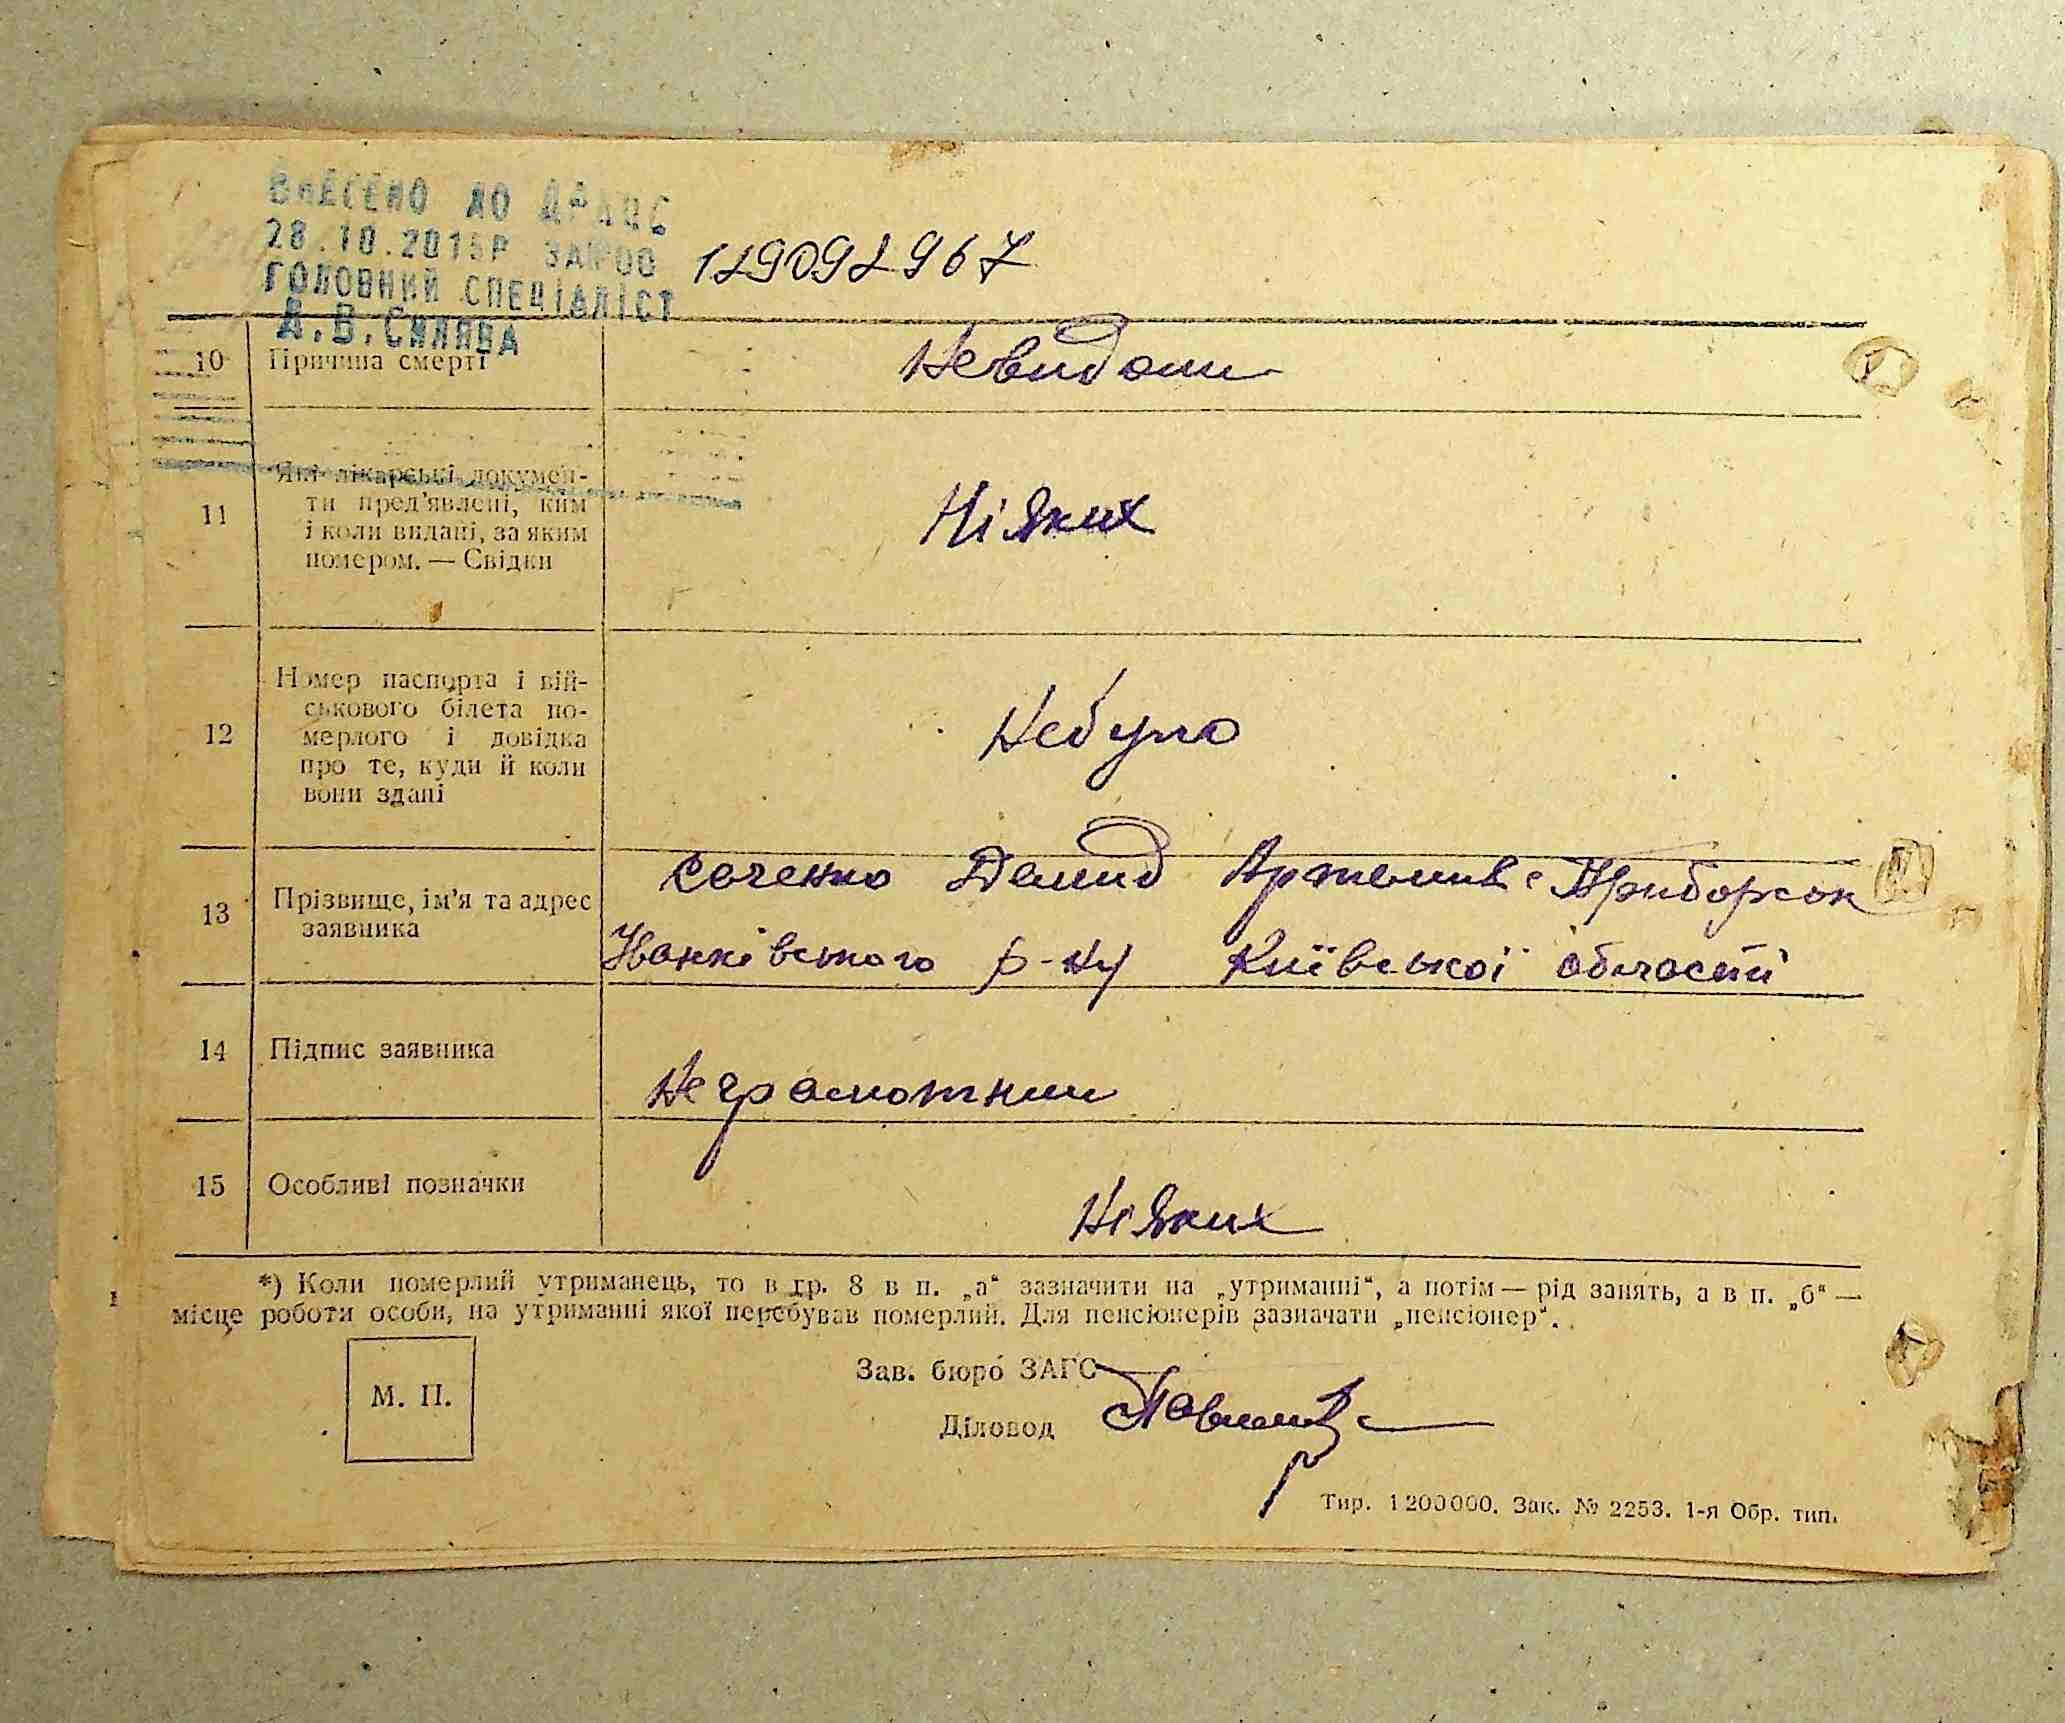 ВНЕСЕНО ДО ДРАЦС
28.10.2015Р ЗА №00 129092967
ГОЛОВНИЙ СПЕЦІАЛІСТ
А.В.Силява
10 Причина смерті Невидоми
11 Які лікарські докумен-
ти пред'явлені, ким
і коли видані, за яким
номером. — Свідки
Ніяких
12 Номер паспорта і вій-
ськового білета по-
мерлого і довідка
про те, куди й коли
вони здані
Небуло
13 Прізвище, ім'я та адрес
заявника
Саченко Демид Артемив с Приборськ
Іванківського р-ну Київської области
14 Підпис заявника
Неграмотний
15 Особливі позначки
Ніяких
*) Коли померлий утриманець, то в гр. 8 в п. „а“ зазначити на „утриманні“, а потім — рід занять, а в п. „б“ —
місце роботи особи, на утриманні якої перебував померлий. Для пенсіонерів зазначати „пенсіонер“.
М. П.
Зав. бюро ЗАГС
Діловод
Тир. 1200000. Зак. № 2253. 1-я Обр. тип.